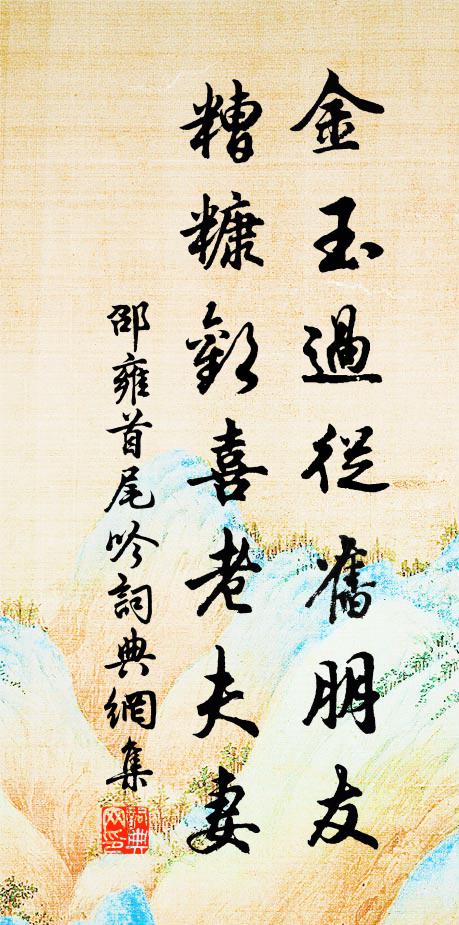 金玉過從舊朋友
糟糠歡喜老夫妻
邵雍首尾吟詞典網集
詞典網印